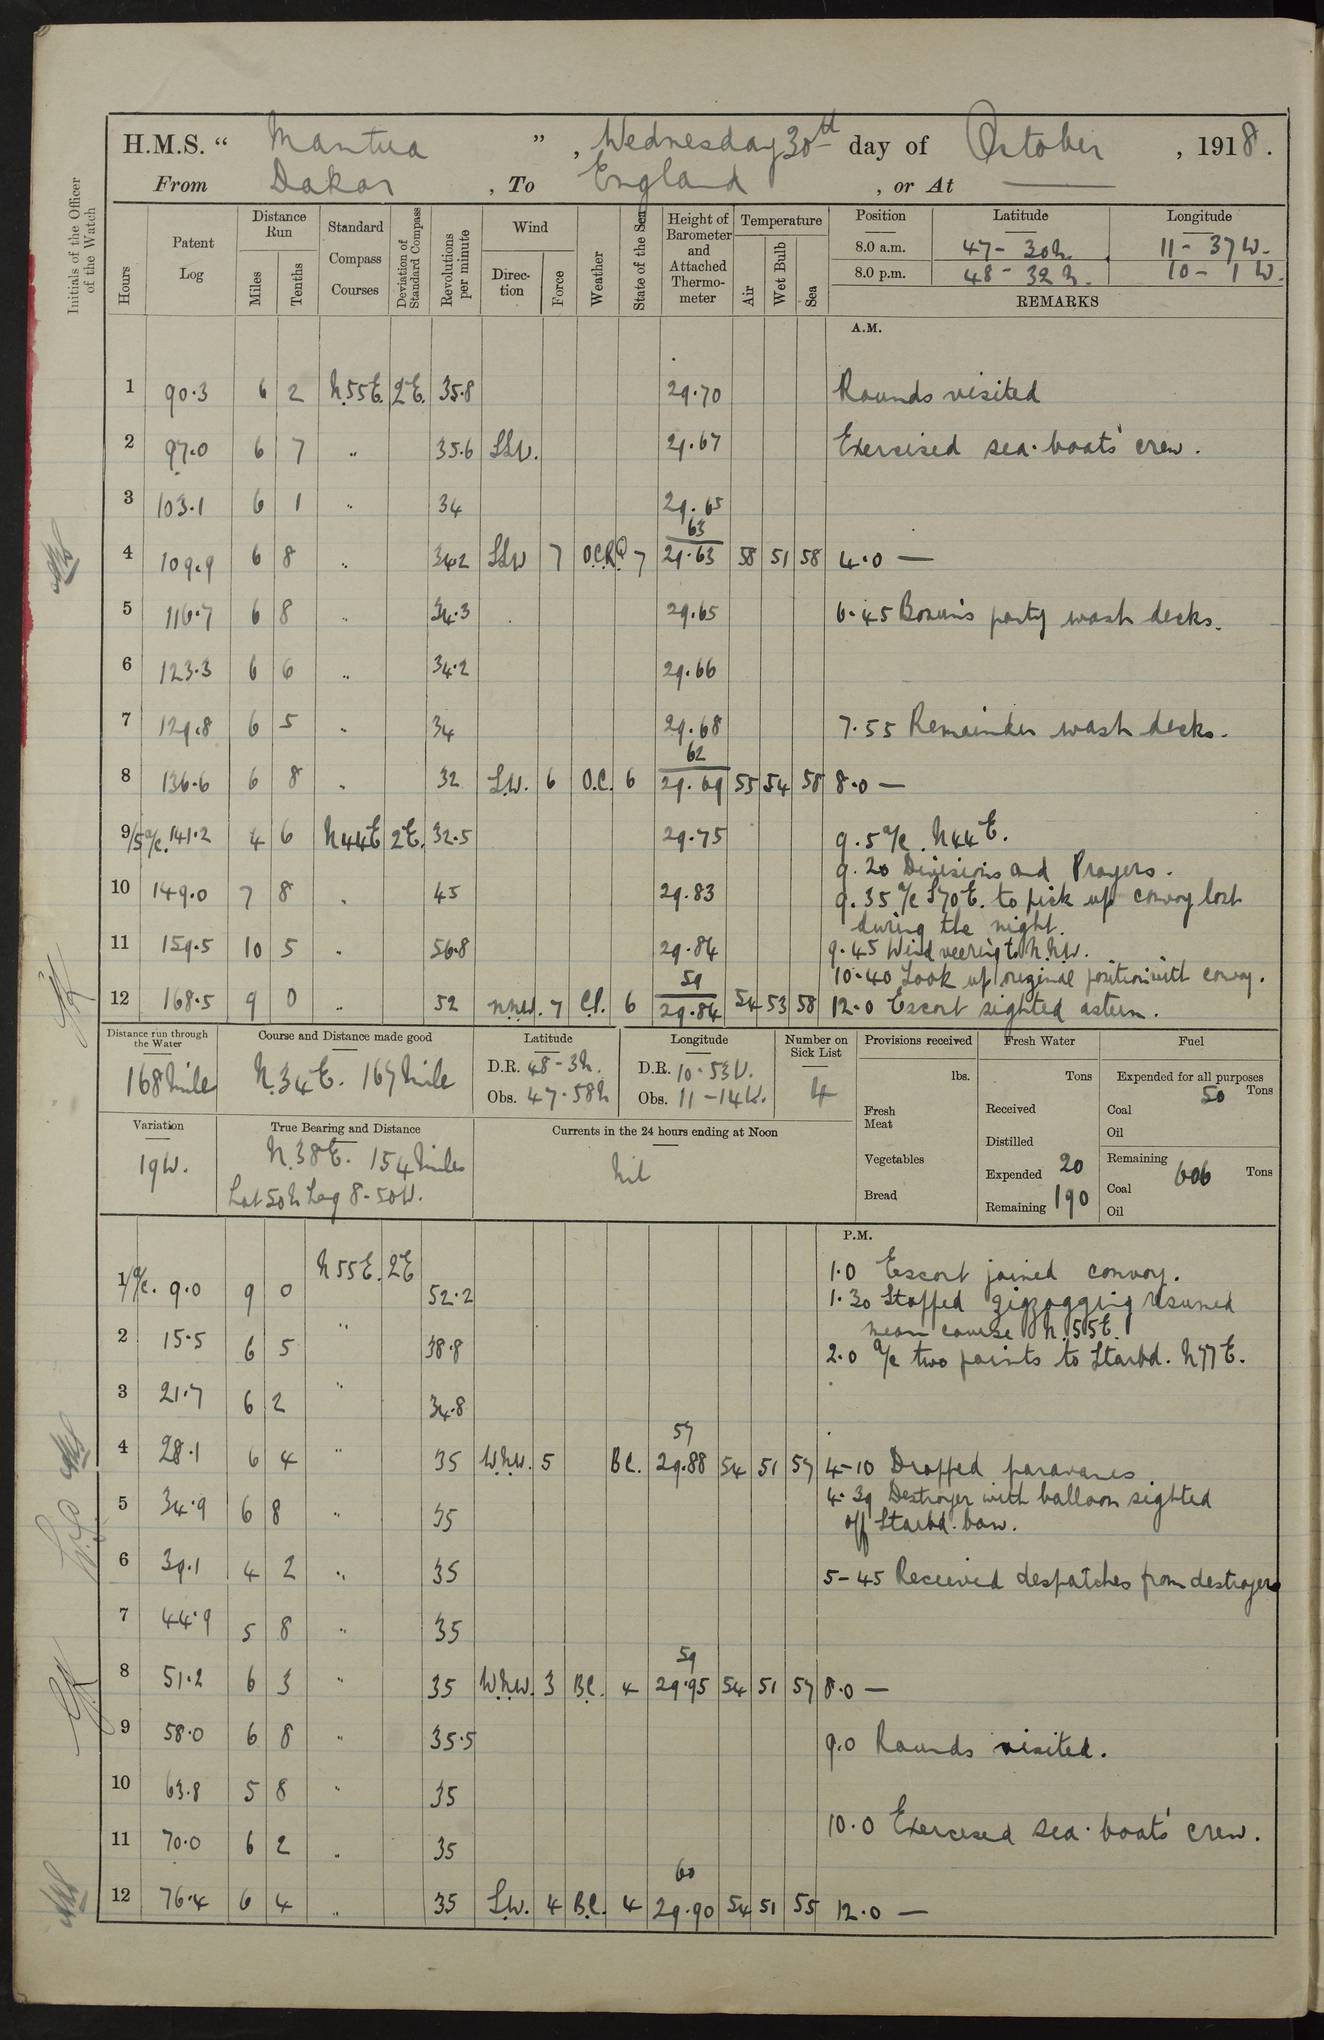 H.M.S. " Mantua ", Wednesday 30th day of October, 1918.
From Dakar, To England, or At —
Initials of the Officer of the Watch
Hours
Patent Log
Distance Run
Miles
Tenths
Standard Compass Courses
Deviation of Standard Compass
Revolutions per minute
Wind
Direction
Force
Weather
State of the Sea
Height of Barometer and Attached Thermometer
Temperature
Air
Wet Bulb
Sea
Position Latitude Longitude
8.0 a.m. 47-30N. 11-37W.
8.0 p.m. 48-32N. 10-1W.
REMARKS
A.M.
1 90.3 6 2 N.55E. 2E. 35.8 29.70 Rounds visited
2 97.0 6 7 " 35.6 SSW. 29.67 Exersised sea-boats' crew.
3 103.1 6 1 " 34 29.65
63
4 109.9 6 8 " 34.2 SSW 7 O.C.R.Q 7 29.63 58 51 58 4.0 —
5 116.7 6 8 " 34.3 29.65 6.45 Bosun's party wash decks.
6 123.3 6 6 " 34.2 29.66
7 129.8 6 5 " 34 29.68 7.55 Remainder wash decks.
62
8 136.6 6 8 " 32 S.W. 6 O.C. 6 29.69 55 54 58 8.0 —
9/5 a/c. 141.2 4 6 N44E 2E. 32.5 29.75 9.5 a/c N44E.
9.20 Divisions and Prayers.
10 149.0 7 8 " 45 29.83 9.35 a/c S70E. to pick up convoy lost
during the night.
11 159.5 10 5 " 56.8 29.84 9.45 Wind veering to N.N.W.
59 10-40 Took up original position with convoy.
12 168.5 9 0 " 52 NNW. 7 C.P. 6 29.84 54 53 58 12.0 Escort sighted astern.
Distance run through the Water
168 Mile
Course and Distance made good
N.34E. 167 Mile
Latitude
D.R. 48-3N.
Obs. 47.58N
Longitude
D.R. 10-53W.
Obs. 11-14W.
Number on Sick List
4
Provisions received
lbs.
Fresh Meat
Vegetables
Bread
Fresh Water
Tons
Received
Distilled
Expended 20
Remaining 190
Fuel
Expended for all purposes
Coal 50 Tons
Oil
Remaining
Coal 606 Tons
Oil
Variation
19W.
True Bearing and Distance
N.38E. 154 Miles
Lat 50N Log 8-50W.
Currents in the 24 hours ending at Noon
Nil
P.M.
N55E. 2E 1.0 Escort joined convoy.
1/a/c. 9.0 9 0 52.2 1.30 Stopped zigzagging resumed
mean course N.55E.
2 15.5 6 5 " 38.8 2.0 a/c two points to Starbd. N77E.
3 21.7 6 2 " 34.8
57
4 28.1 6 4 " 35 W.N.W. 5 BC. 29.88 54 51 57 4-10 Dropped paravanes
4.39 Destroyer with balloon sighted
5 34.9 6 8 " 35 off Starbd. bow.
6 39.1 4 2 " 35 5-45 Received despatches from destroyer
7 44.9 5 8 " 35
59
8 51.2 6 3 " 35 W.N.W. 3 B.C. 4 29.95 54 51 57 8.0 —
9 58.0 6 8 " 35.5 9.0 Rounds visited.
10 63.8 5 8 " 35
10.0 Exercised sea-boats' crew.
11 70.0 6 2 " 35
60
12 76.4 6 4 " 35 S.W. 4 B.C. 4 29.90 54 51 55 12.0 —